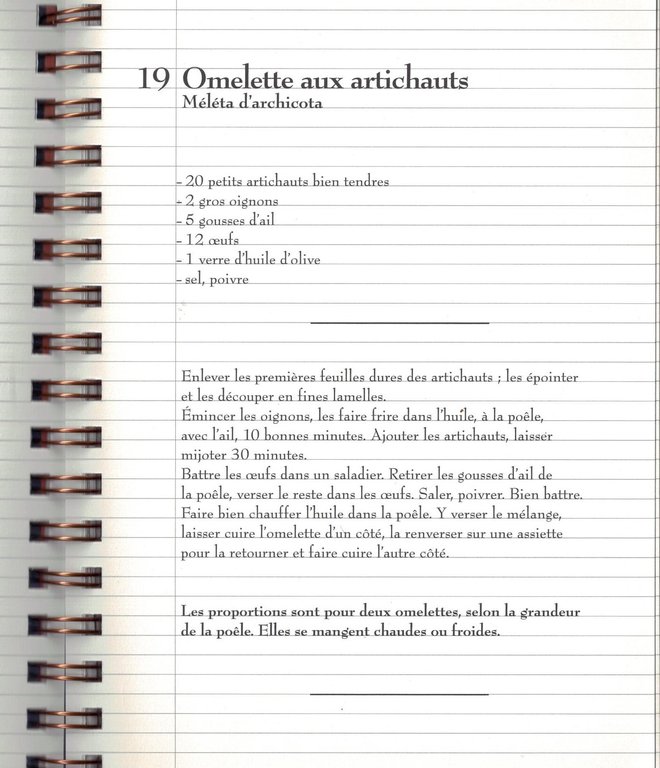 19 Omelette aux artichauts
Méléta d'archicota
- 20 petits artichauts bien tendres
- 2 gros oignons
- 5 gousses d'ail
- 12 œufs
- 1 verre d'huile d'olive
- sel, poivre
Enlever les premières feuilles dures des artichauts ; les épointer
et les découper en fines lamelles.
Émincer les oignons, les faire frire dans l'huile, à la poêle,
avec l'ail, 10 bonnes minutes. Ajouter les artichauts, laisser
mijoter 30 minutes.
Battre les œufs dans un saladier. Retirer les gousses d'ail de
la poêle, verser le reste dans les œufs. Saler, poivrer. Bien battre.
Faire bien chauffer l'huile dans la poêle. Y verser le mélange,
laisser cuire l'omelette d'un côté, la renverser sur une assiette
pour la retourner et faire cuire l'autre côté.
Les proportions sont pour deux omelettes, selon la grandeur
de la poêle. Elles se mangent chaudes ou froides.